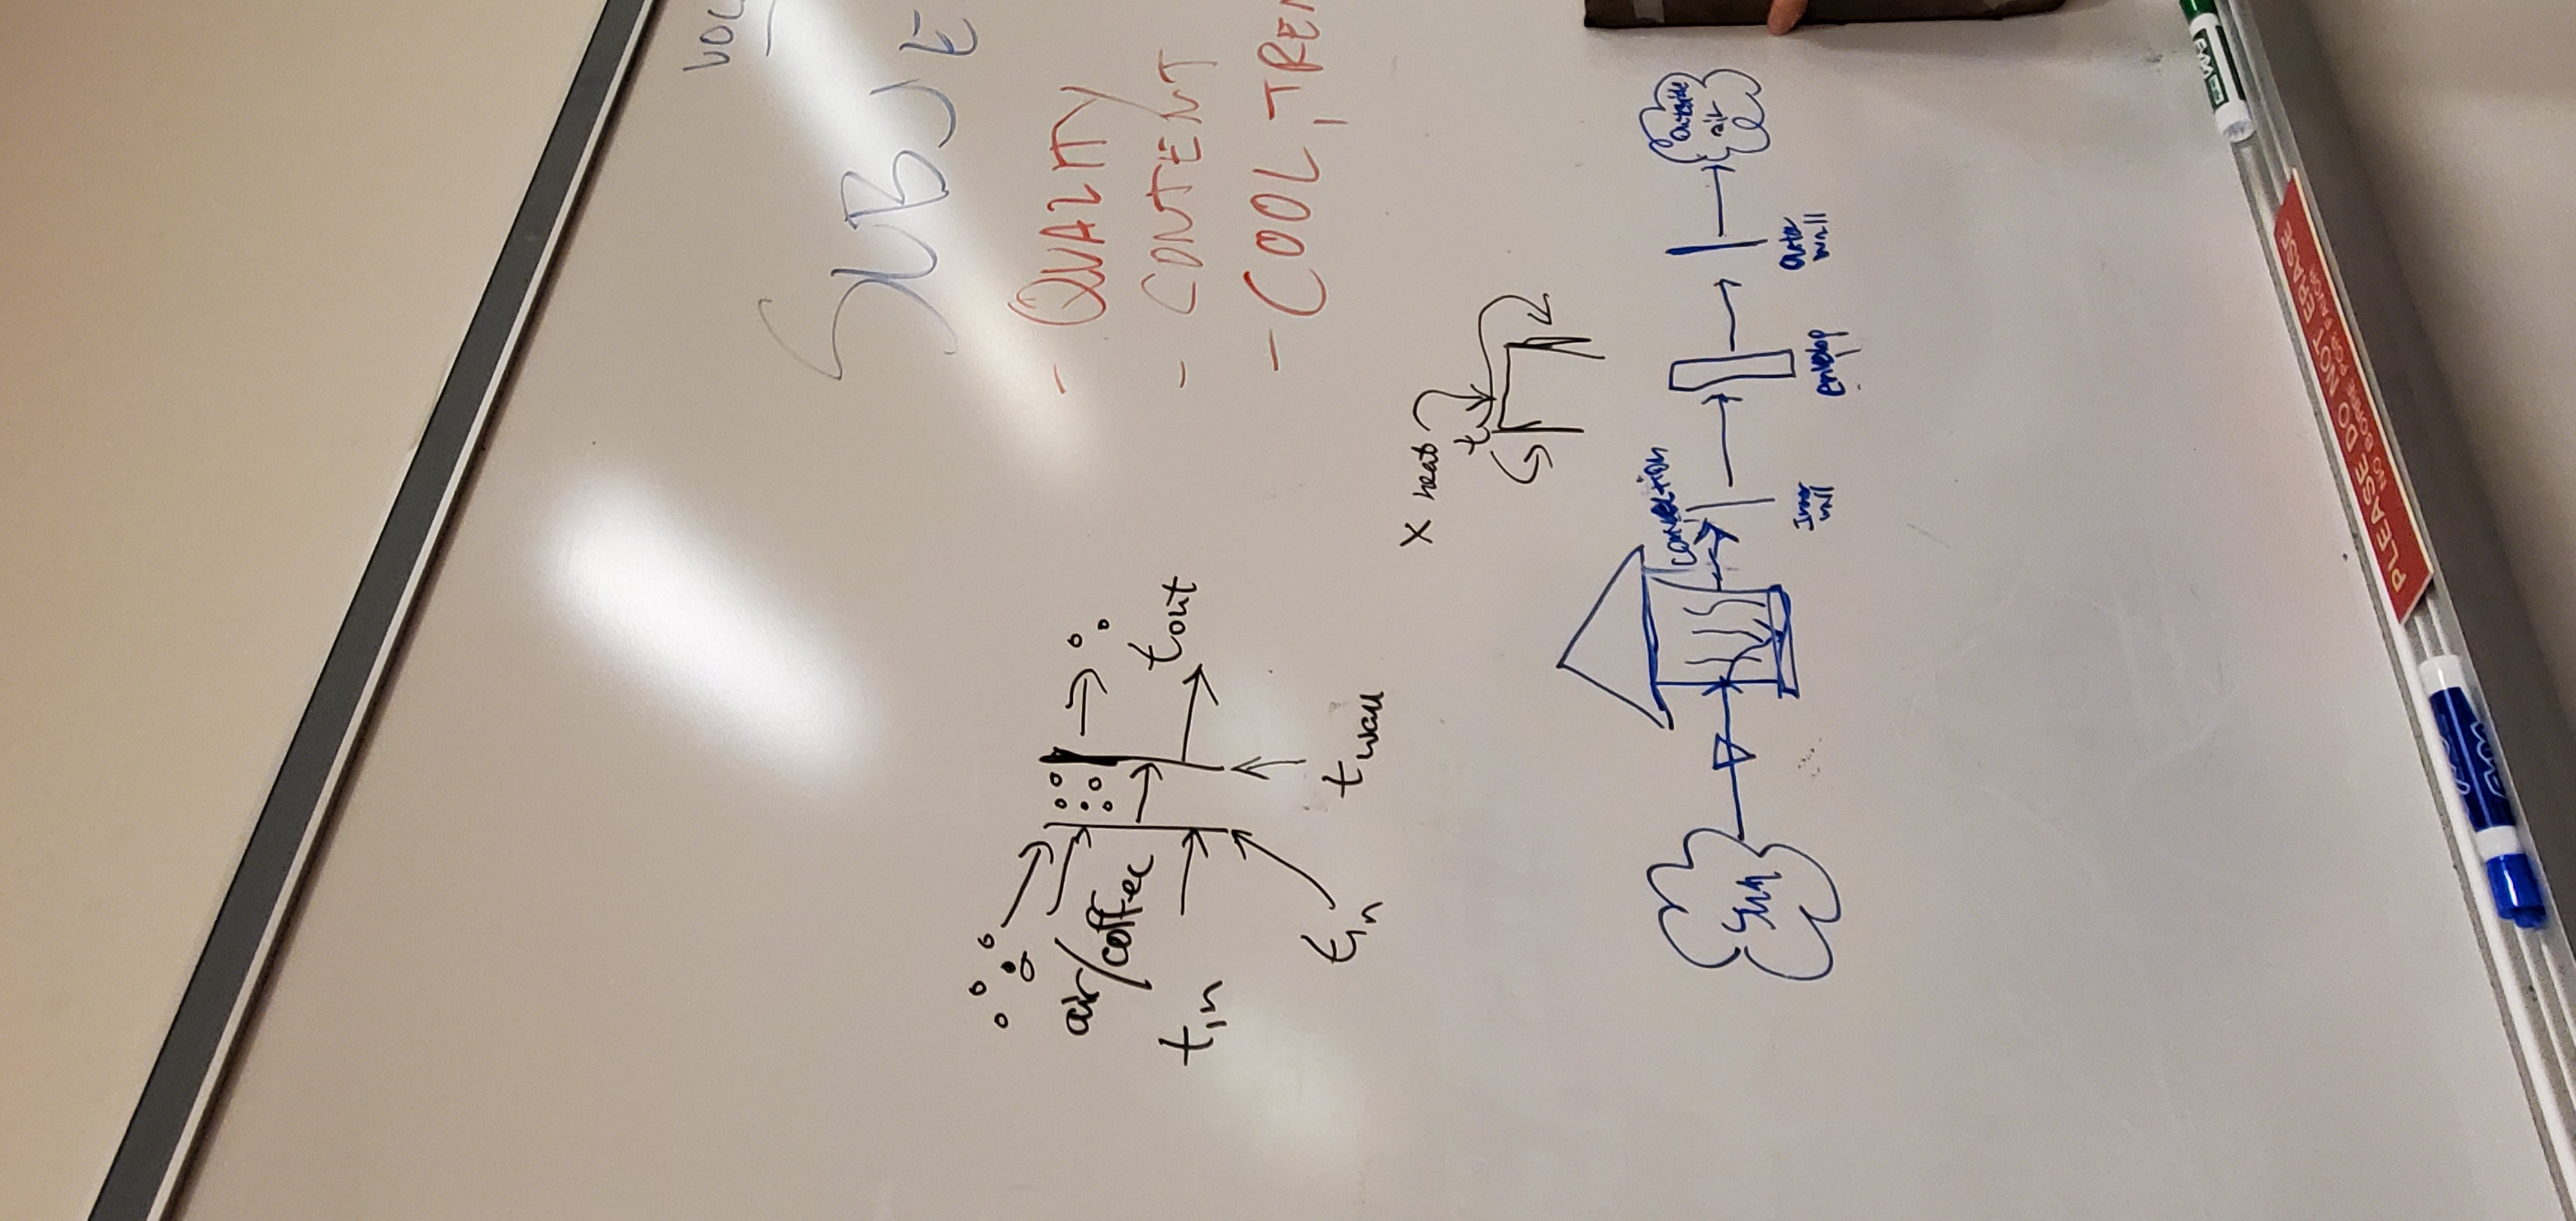 SUBJE
- QUALITY
- CONTENT
- COOL, TREN
air/coffee
tin
tout
tin
twall
X heat
t
Sun
convection
Inner
wall
envelop
Outer
wall
Outside
air
PLEASE DO NOT ERASE
NO BORRE POR FAVOR